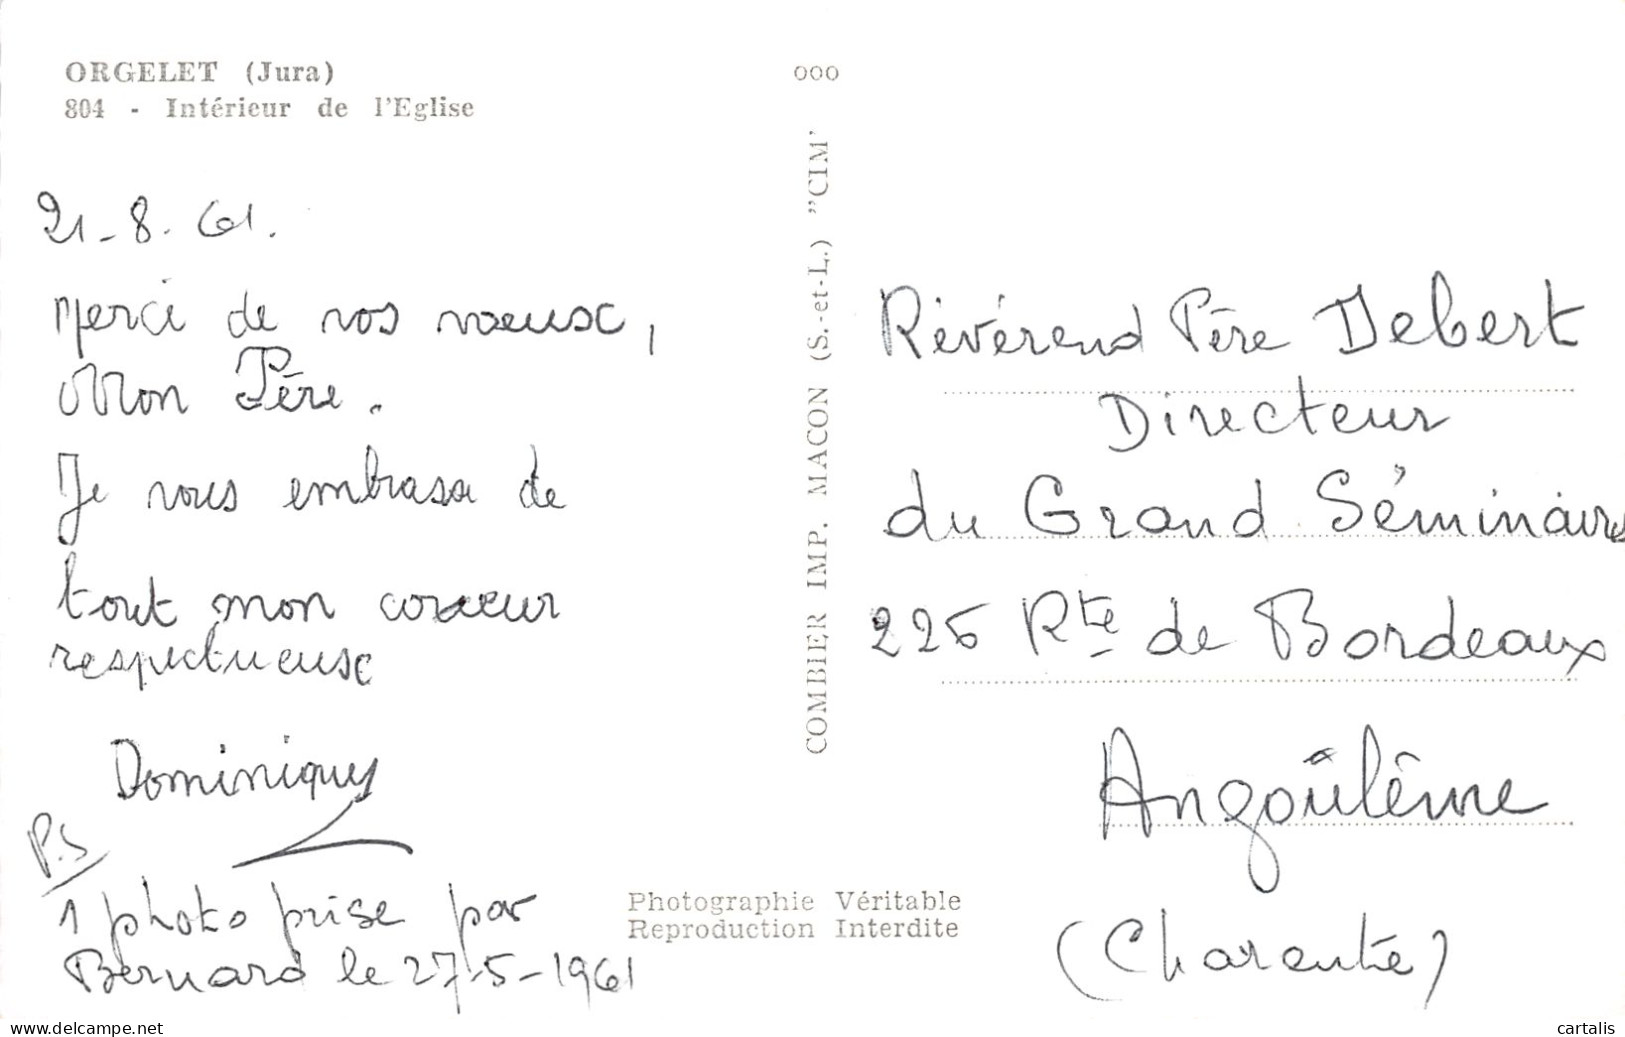 ORGELET (Jura)
804 - Intérieur de l'Eglise
21-8-61.
Merci de vos voeux,
Mon Père.
Je vous embrasse de
tout mon coeur
respectueux
Dominique
P.S
1 photo prise par
Bernard le 27-5-1961
000
COMBIER IMP. MACON (S.-et-L.) "CIM"
Photographie Véritable
Reproduction Interdite
Révérend Père Debert
Directeur
du Grand Séminaire
226 Rte de Bordeaux
Angoûlême
(Charente)
www.delcampe.net
cartalis